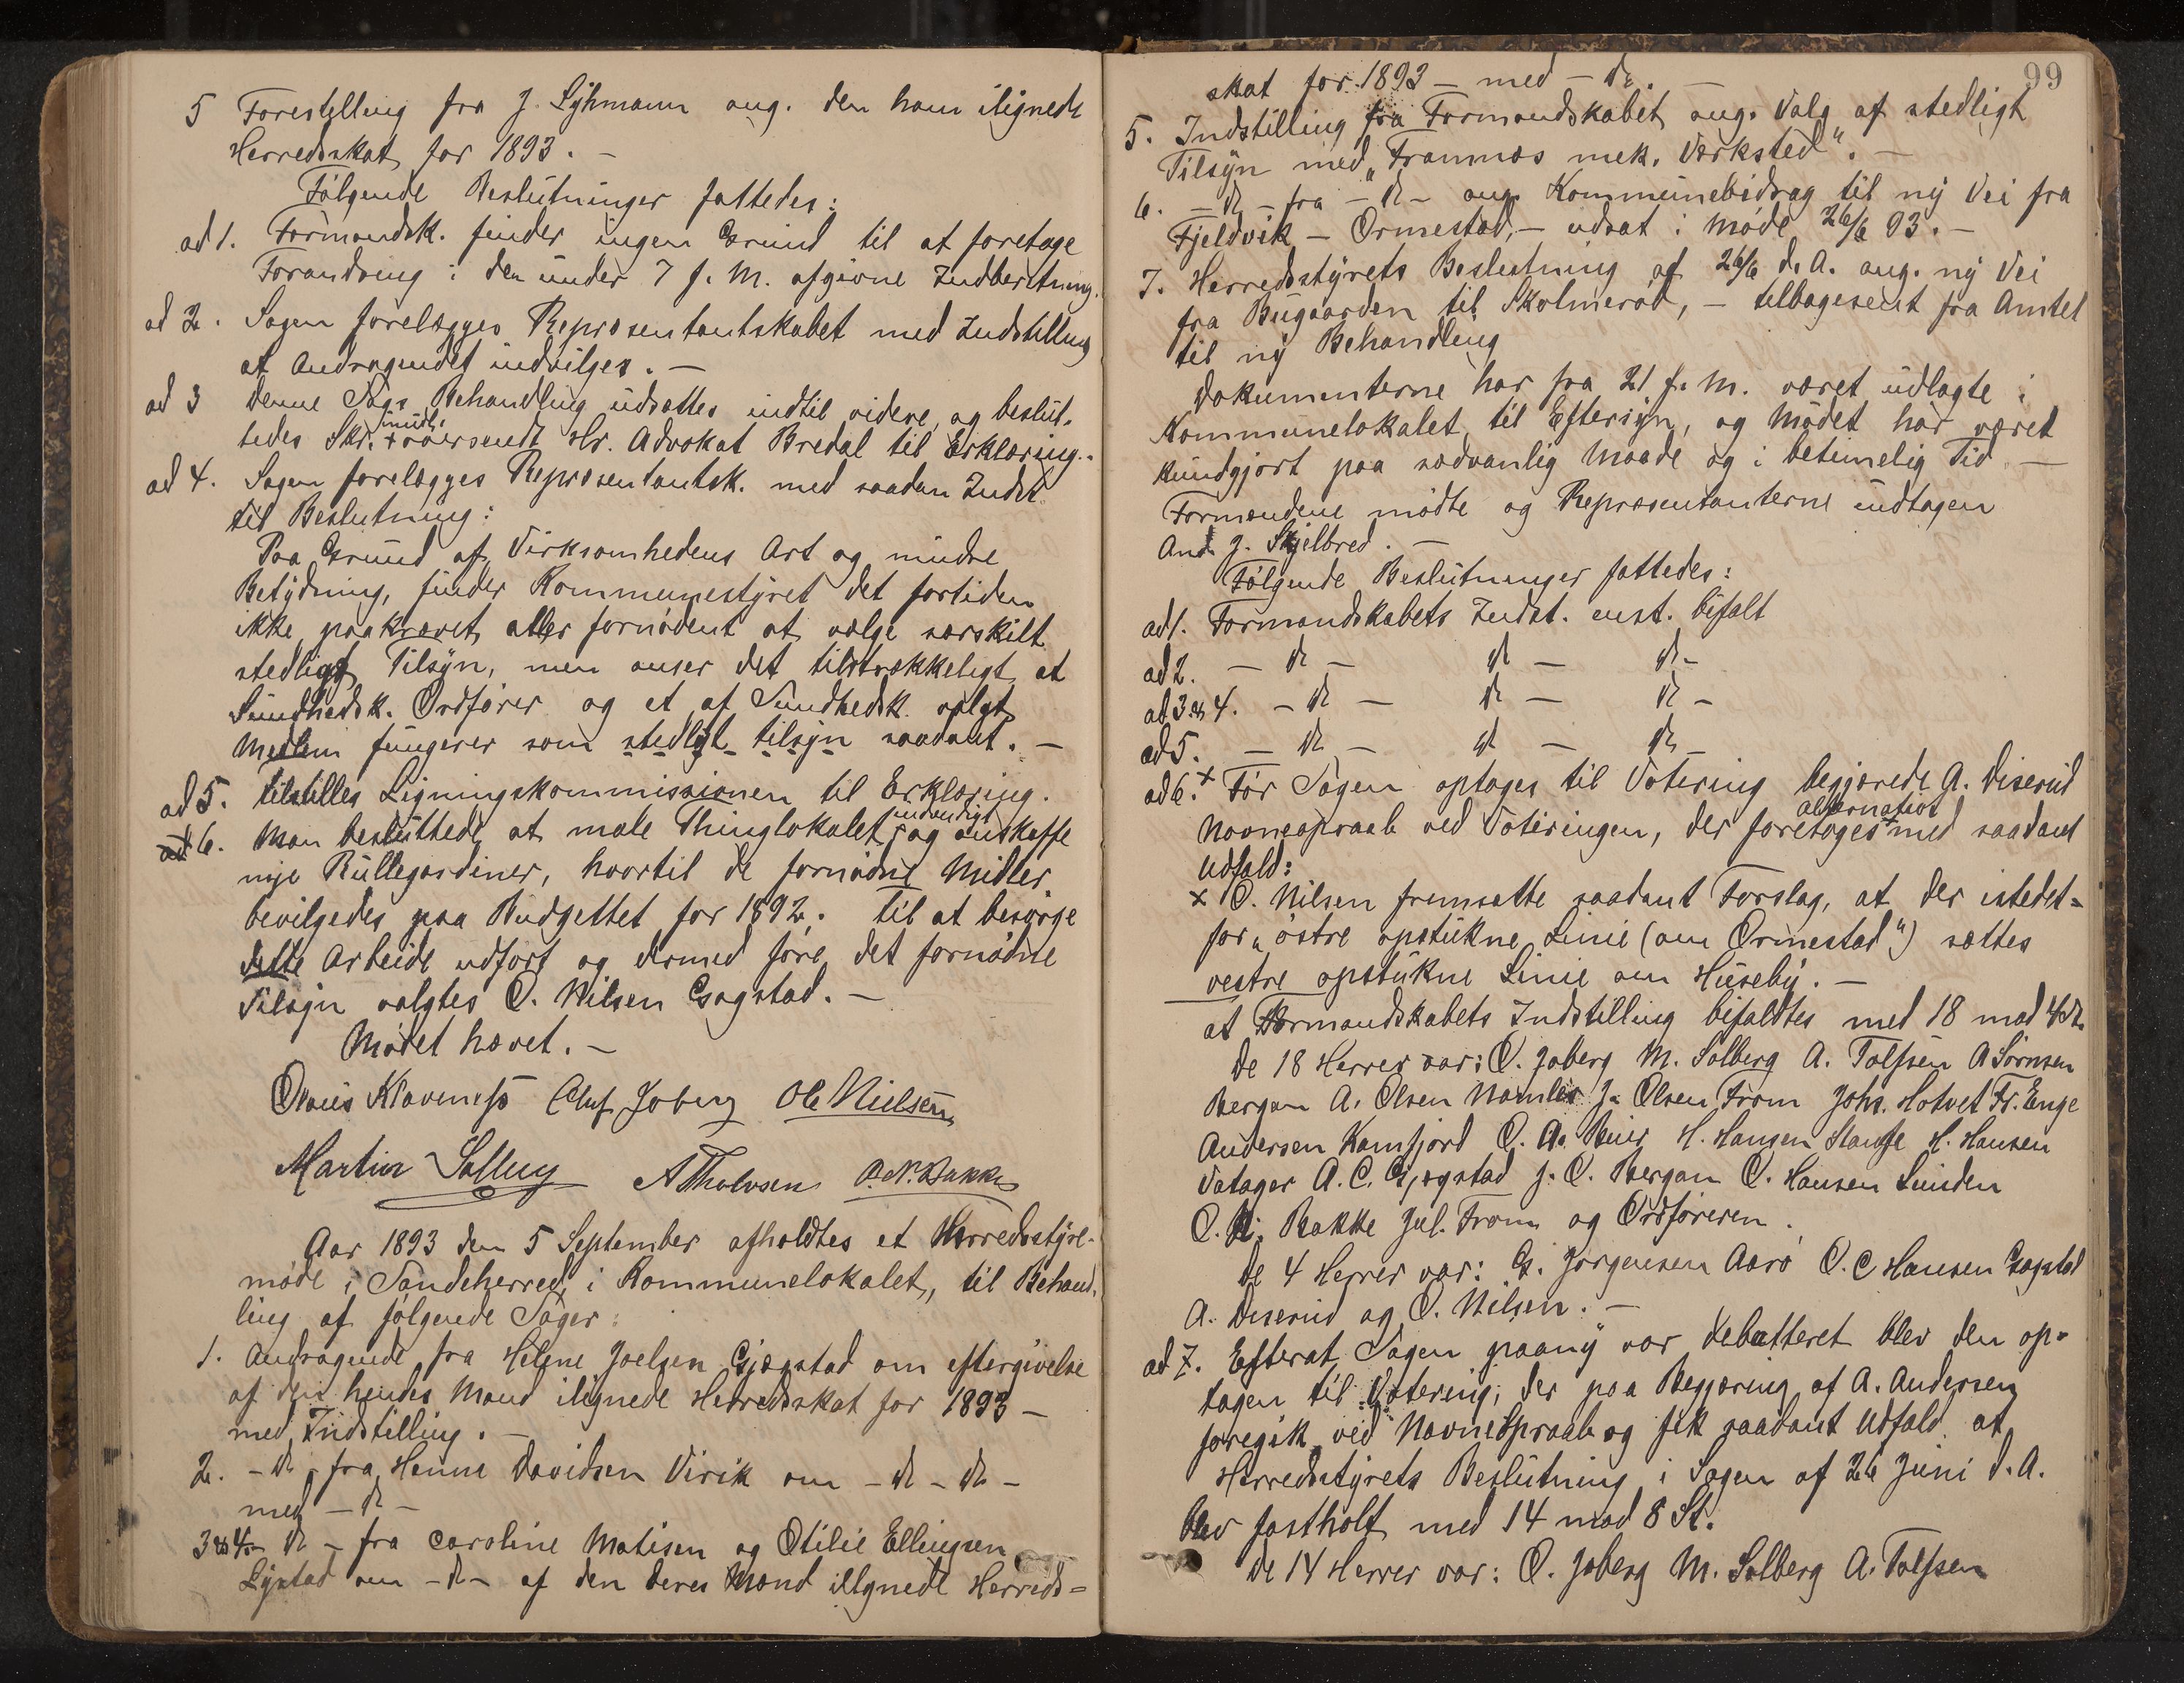 5 Forestelling fra J. Lyhmann ang. den ham ilignede
Herredsskat for 1893. –
Følgende Beslutninger fattedes:
ad 1. Formandsk. finder ingen Grund til at foretage
Forandring i den under 7 f. M. afgivne Indberetning.
ad 2. Sagen forelægges Repræsentantskabet med Indstilling
at Andragendet indvilges. –
ad 3 Denne Sags Behandling udsættes indtil videre og beslut-
tedes Skr. oversendt Hr. Advokat Bredal til Erklæring. –
ad 4. Sagen forelægges Repræsentantsk. med saadan Indst.
til Beslutning:
Paa Grund af Virksomhedens Art og mindre
Betydning, finder Kommunestyret det fortiden
ikke paakrævet eller fornødent at vælge særskilt
stedligt Tilsyn, men anser det tilstrækkeligt at
Sundhedsk. Ordfører og et af Sundhedsk. valgt
Medlem fungerer som stedligt tilsyn saadant. –
ad 5. Tilstilles Ligningskommissionen til Erklæring.
ad 6. Man besluttede at male Thinglokalet indvendigt og anskaffe
nye Rullegardiner, hvortil de fornødne Midler
bevilgedes paa Budgettet for 1892. Til at besørge
dette Arbeide udført og dermed føre det fornødne
Tilsyn valgtes O. Nilsen Gogstad. –
Mødet hævet. –
Olaus Klaveness Chuf Joberg Ole Nielsen
Martin Solberg A Tholvsen O. N. Bakke
Aar 1893 den 5 September afholdtes et Herredsstyre-
møde i Sandeherred i Kommunelokalet, til Behand-
ling af følgende Sager:
1. Andragende fra Helene Joelsen Gjøgstad om eftergivelse
af den hendes Mand ilignede Herredsskat for 1893 –
med Indstilling. –
2. – do – fra Henne Davidsen Virik om – do – do –
med – do –
3 og 4 – do – fra Caroline Matisen og Otilie Ellingsen
Lystad om – do – af den deres Mænd ilignede Herreds=
99
skat for 1893 – med – do. –
5. Indstilling fra Formandskabet ang. Valg af stedligt
Tilsyn med „Framnæs mek. Værksted“. –
6. – do – fra – do – ang. Kommunebidrag til ny Vei fra
Fjeldvik – Ormestad, – udsat i Møde 26/6 93. –
7. Herredsstyrets Beslutning af 26/6 d. A. ang. ny Vei
fra Bugaarden til Skolmerød, – tilbagesendt fra Amtet
til ny Behandling
Dokumenterne har fra 21 f. M. været udlagte i
Kommunelokalet til Eftersyn, og Mødet har været
kundgjort paa sædvanlig Maade og i betimelig Tid –
Formændene mødte og Repræsentanterne undtagen
And. J. Skjelbred. –
Følgende Beslutninger fattedes:
ad 1. Formandskabets Indst. enst. bifalt
ad 2. – do – do – do –
ad 3 og 4. – do – do – do –
ad 5. – do – do – do –
ad 6. × Før Sagen optages til Votering begjærede A. Diserud
Navneopraab ved Voteringen, der foretoges alternativt med saadant
Udfald:
× O. Nilsen fremsatte saadant Forslag, at der istedet=
for „østre opstukne Linie (om Ormestad“) sættes
vestre opstukne Linie om Huseby. –
at Formandskabets Indstilling bifaldtes med 18 mod 4 St.
De 18 Herrer var: O. Joberg M. Solberg A. Tolfsen A Sørnsen
Bergan A. Olsen Namløs J. Olsen Fram Johs. Hotvet Fr. Enge
Andersen Kamfjord O. A. Ruier H. Hansen Haustje H. Hansen
Vatager A. C. Gjøgstad J. O. Bergan O. Hansen Lunden
O. N. Bakke Jul. Fram og Ordføreren.
De 4 Herrer var: G. Jørgensen Aarø O. C Hansen Gogstad
A. Diserud og O. Nilsen. –
ad 7. Efterat Sagen paany var debatteret blev den op-
tagen til Votering, der paa Begjæring af A. Andersen
foregik ved Navneopraab og fik saadant Udfald at
Herredsstyrets Beslutning i Sagen af 26 Juni d. A.
blev fastholt med 14 mod 8 St.
De 14 Herrer var: O. Joberg M. Solberg A. Tolfsen